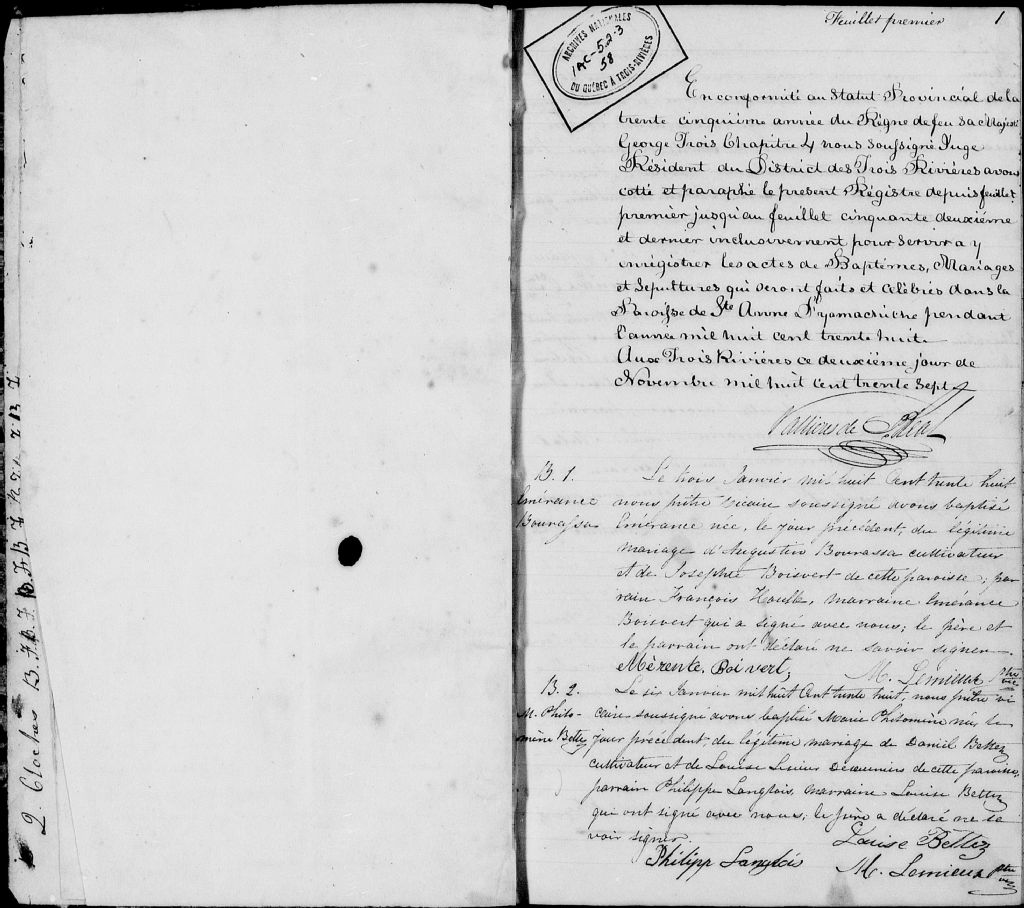 Feuillet premier 1
ARCHIVES NATIONALES
1AC-5.2-3
58
DU QUÉBEC À TROIS-RIVIÈRES
En conformité au Statut Provincial de la
trente cinquième année du Règne de feu sa Majesté
George Trois Chapitre 4 nous soussigné Juge
Résident du District des Trois Rivières avons
cotté et paraphé le present Régistre depuis feuillet
premier jusqu'au feuillet cinquante deuxième
et dernier inclusivement pour servir a y
enrégistrer les actes de Baptêmes, Mariages
et Sepultures qui seront faits et célèbrés dans la
Paroisse de Ste Anne D'yamachiche pendant
l'année mil huit cent trente huit
Aux Trois Rivières ce deuxième jour de
Novembre mil huit cent trente Sept
Vallieres de St Real
B. 1.
Emérance
Bourassa
Le trois Janvier mil huit Cent trente huit
nous prêtre vicaire soussigné avons baptisé
Emérance née, le jour précédent, du légitime
mariage d'Augustin Bourassa cultivateur
et de Josephte Boisvert de cette paroisse; par
rain François Houlle, marraine Emérance
Boisvert qui a signé avec nous; le père et
le parrain ont déclaré ne savoir signer.
Mèrente. Boivert,
M. Lemieux Ptre
vic
B. 2.
M. Philo-
mène Bettez
Le six Janvier mil huit Cent trente huit, nous prêtre vi
caire soussigné avons baptisé Marie Philomène née le
jour précédent, du légitime mariage de Daniel Bettez
cultivateur et de Louise Lesieur Desaunies de cette paroisse,
parrain Philippe Langlois, marraine Louise Bettez
qui ont signé avec nous; le père a déclaré ne sa
voir signer
Louise Bettez
Philipp Langloi
M. Lemieux ptre
vic
2 Cloches B. 7.